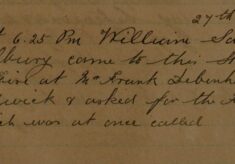 27th
6.25 Pm William Sa
bury came to this St
ire at Mr Frank Debenh
wick & asked for the A
ch was at once called